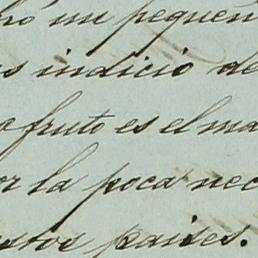 un pequeñ
indició de
fruto es el ma
or la poca nec
stos paises.